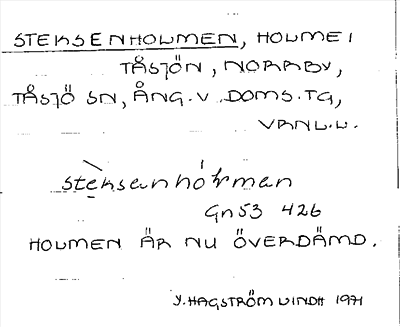 STEKSENHOLMEN, HOLME I
TÅSJÖN, NORRBY,
TÅSJÖ SN, ÅNG. V. DOMS. TG,
VANL. U.
steksenhólmen
Gn 53 426
HOLMEN ÄR NU ÖVERDÄMD.
Y. HAGSTRÖM LINDH 1971